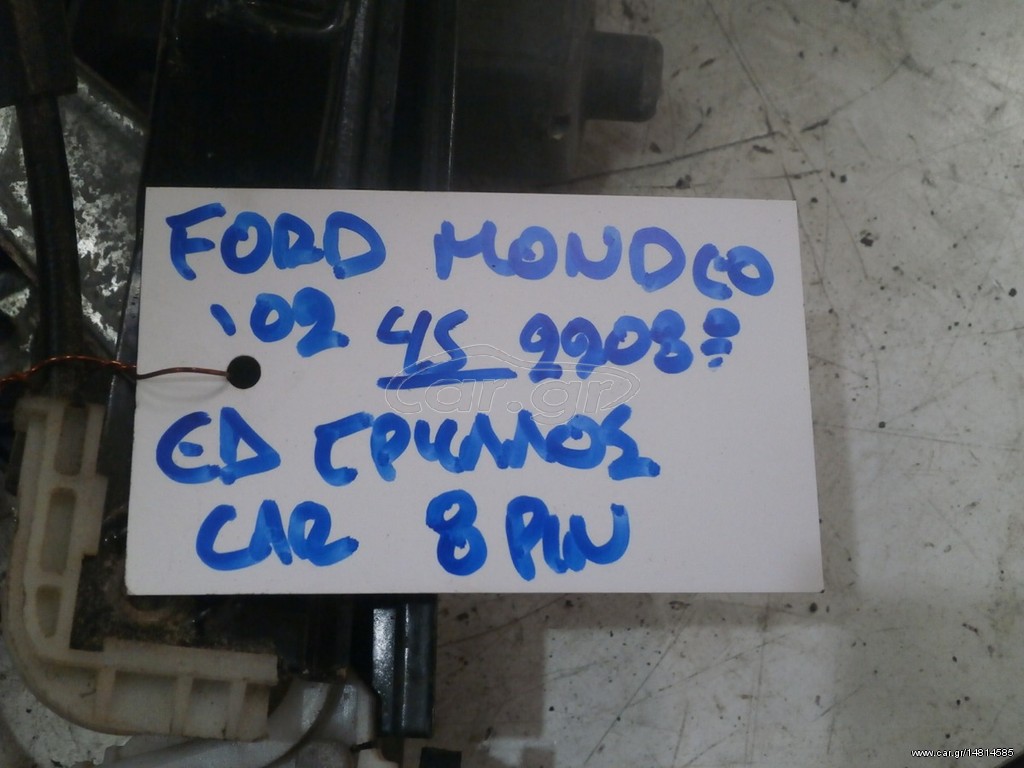 FORD MONDEO
'02 45 22082
ΕΔ ΓΡΥΛΛΟΣ
CAR 8 PIN
car.gr
www.car.gr/14814585